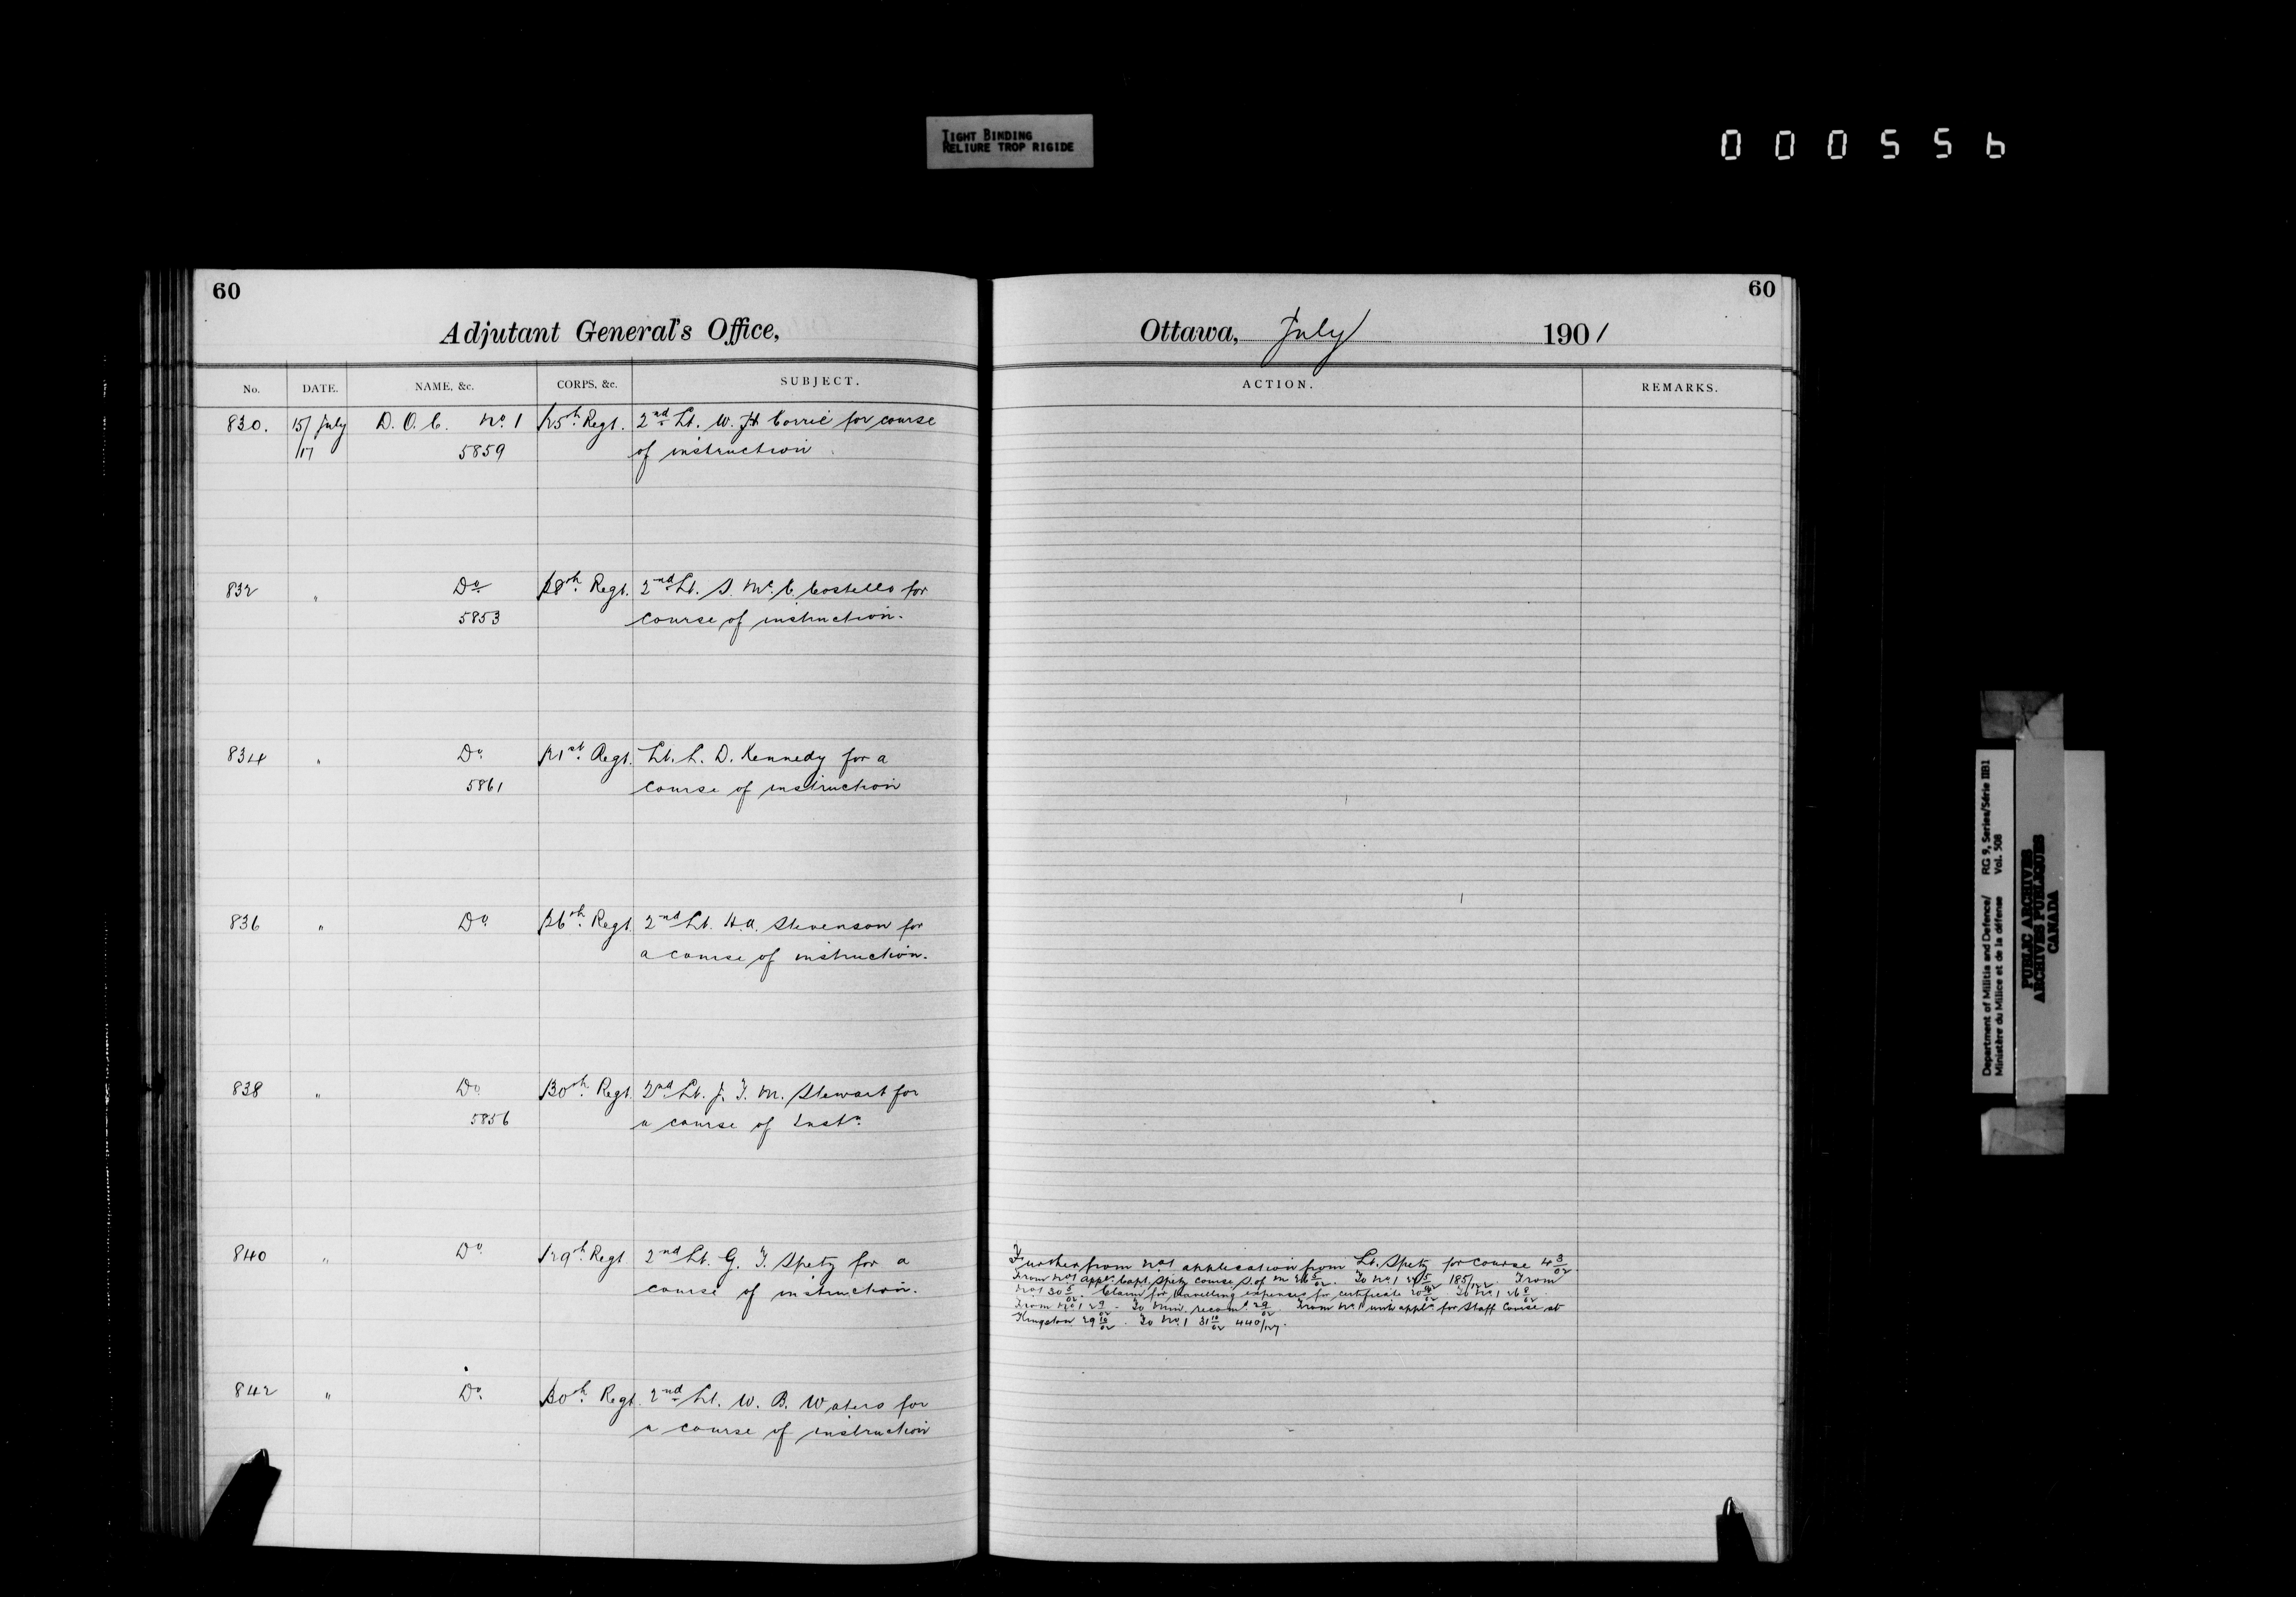 TIGHT BINDING
RELIURE TROP RIGIDE
000556
60
Adjutant General's Office,
No. DATE. NAME, &c. CORPS, &c. SUBJECT.
830. 15/ July D.O.C. No. 1 25th Regt. 2nd Lt. W. H. Corrie for course
/17 5859 of instruction
832 " Do 28th Regt. 2nd Lt. S. McC. Costello for
5853 course of instruction.
834 " Do. 21st Regt. Lt. L. D. Kennedy for a
5861 course of instruction
836 " Do. 26th Regt. 2nd Lt. H.A. Stevenson for
a course of instruction.
838 " Do. 30th Regt. 2nd Lt. J. T. M. Stewart for
5856 a course of Instn.
840 " Do. 29th Regt 2nd Lt. G. T. Spetz for a
course of instruction.
842 " Do. 30th Regt. 2nd Lt. W. B. Waters for
a course of instruction
60
Ottawa, July 1901
ACTION. REMARKS.
Further from No1 application from Lt. Spetz for course 4 3/02
From No1 appn. Capt. Spetz course S. of M. 26 5/02. To No. 1 185/122. From
No1 30 Claim for travelling expenses for certificate To No. 1 26
From No. 1 29 To Min. recomd. 29 From No. 1 with appln. for Staff Course at
Kingston 29 10/02. To No. 1 31 10/02 440/127.
Department of Militia and Defence/ RG 9, Series/Série IIB1
Ministère du Milice et de la défense Vol. 508
PUBLIC ARCHIVES
ARCHIVES PUBLIQUES
CANADA